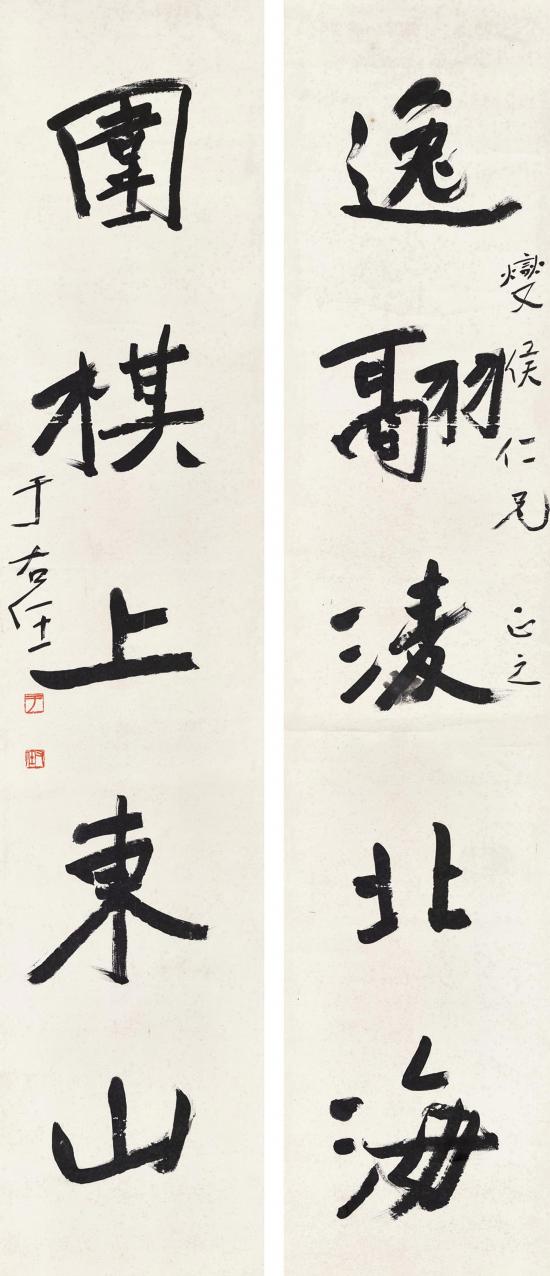 逸翮淩北海
燮侯仁兄正之
圍棋上東山
于右任